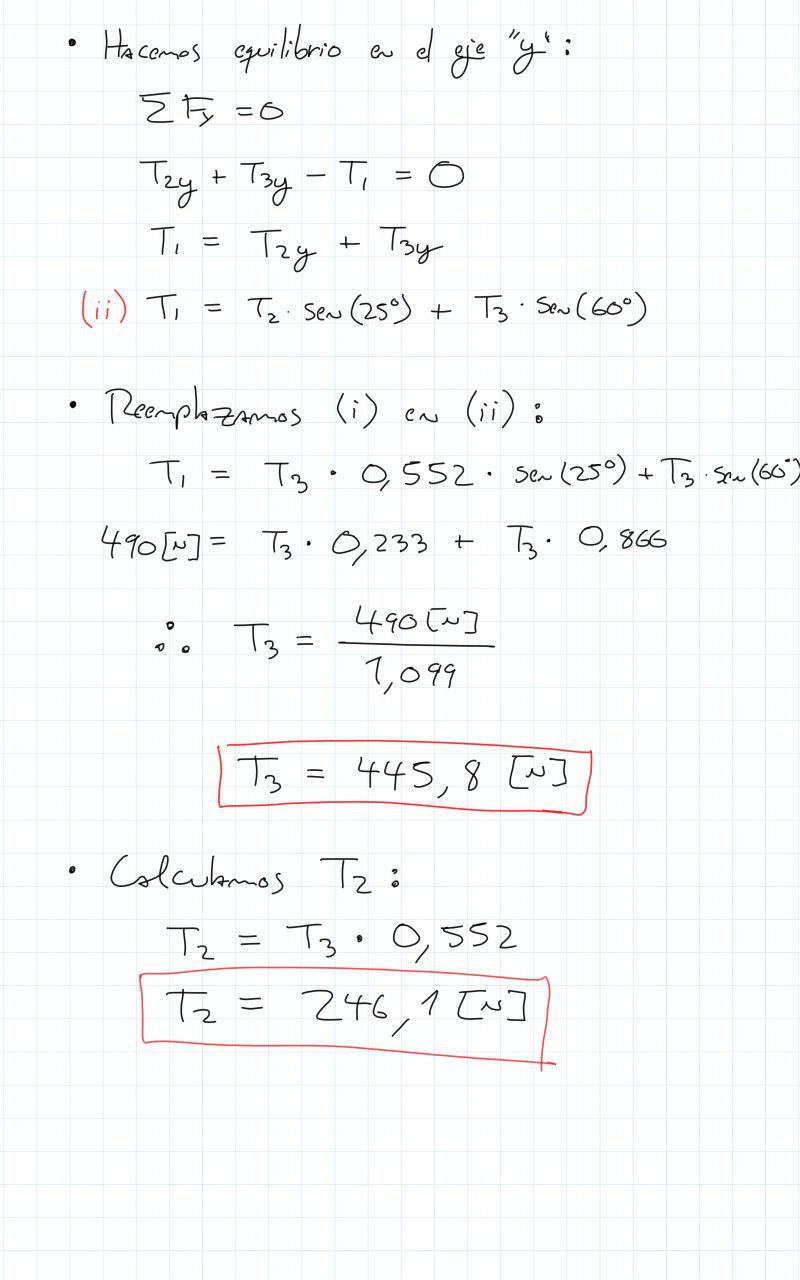 • Hacemos equilibrio en el eje "y":
∑ Fy = 0
T2y + T3y - T1 = 0
T1 = T2y + T3y
(ii) T1 = T2 · sen(25°) + T3 · sen(60°)
• Reemplazamos (i) en (ii):
T1 = T3 · 0,552 · sen(25°) + T3 · sen(60°)
490[N] = T3 · 0,233 + T3 · 0,866
∴ T3 = 490[N]
1,099
T3 = 445,8 [N]
• Calculamos T2:
T2 = T3 · 0,552
T2 = 246,1 [N]